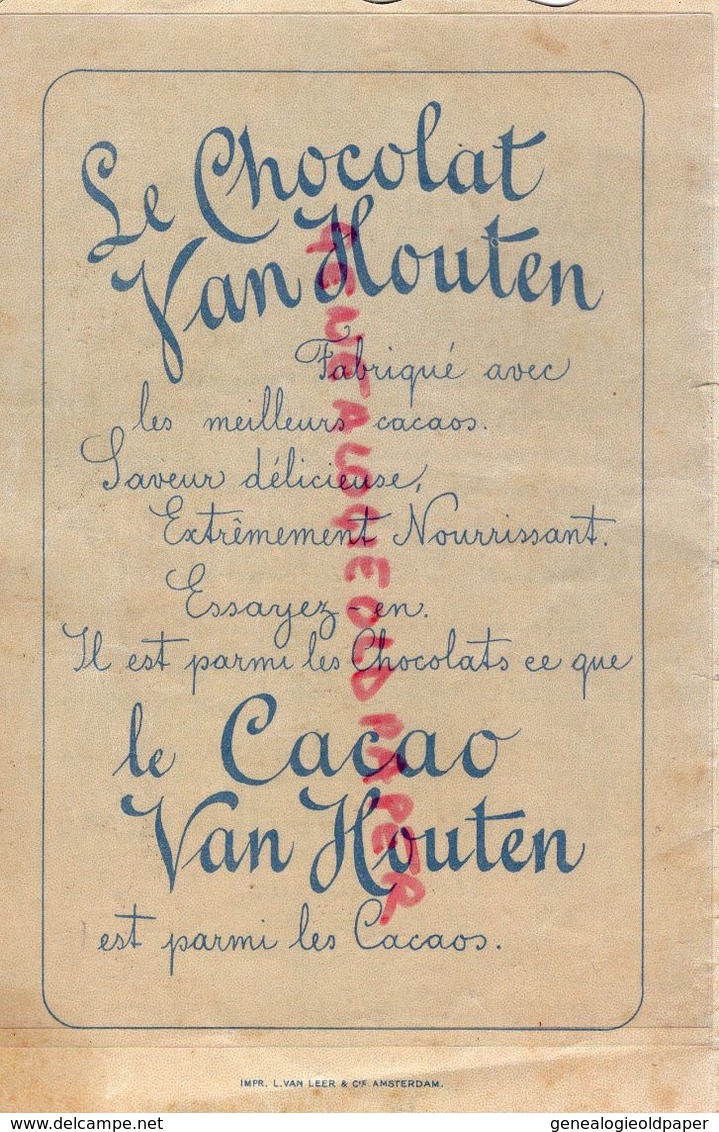 Le Chocolat
Van Houten
Fabriqué avec
les meilleurs cacaos.
Saveur délicieuse,
Extrêmement Nourrissant.
Essayez-en.
Il est parmi les Chocolats ce que
le Cacao
Van Houten
est parmi les Cacaos.
GENEALOGIEOLDPAPER
IMPR. L. VAN LEER & CIE AMSTERDAM.
delcampe.net
genealogieoldpaper